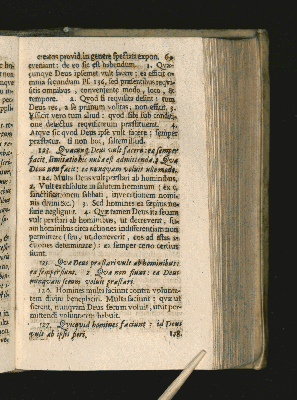 creatos provid. in genere spectati expon. 69
eveniant: de eo sic est habendum. 1. Quæ-
cunque Deus ipsemet vult facere: ea efficit o-
mnia secundum Pf. 136. sed præsentibus requi-
sitis omnibus, conveniente modo, loco, &
tempore. 2. Quod si requisita desint: tum
Deus res, a se primum volitas, non efficit. 3.
Efficit vero tum aliud: quod sibi sub conditi-
one defectus requisitorum præstituerit. 4.
Atque sic quod Deus ipse vult facere: semper
præstatur. si non hoc, saltem illud.
123. Quæcunq; Deus vult facere: ea semper
facit, limitationibus nulla est admittenda. 2 Quæ
Deus non facit: ea nunquam voluit ullo modo.
124. Multa Deus vult præstari ab hominibus.
2. Vult ea absolute in salutem hominum (ex c.
sanctificationem sabbati, invocationem nomi-
nis divini &c.) 3. Sed homines ea sæpius no-
furie negligunt. 4. Quæ tamen Deus ita serum
vult præstari ab hominibus, ut decreverit, su-
am hominibus circa actiones indifferentiam non
permittere (seu, ut decreverit, eos ad istas a-
ctiones determinare): ea semper certo certius
fiunt.
125. Quæ Deus præstari vult ab hominibus:
ea semper fiunt. 2 Quæ non fiunt: ea Deus
nunquam serum voluit præstari.
126. Homines multa faciunt contra volunta-
tem divini beneplaciti. Multa faciunt; quæ ut
fierent, nunquam Deus serum voluit, utut per-
mittendi voluntatem habuit.
127. Quicquid homines faciunt: id Deus
vult ab ipsis fieri, 128.